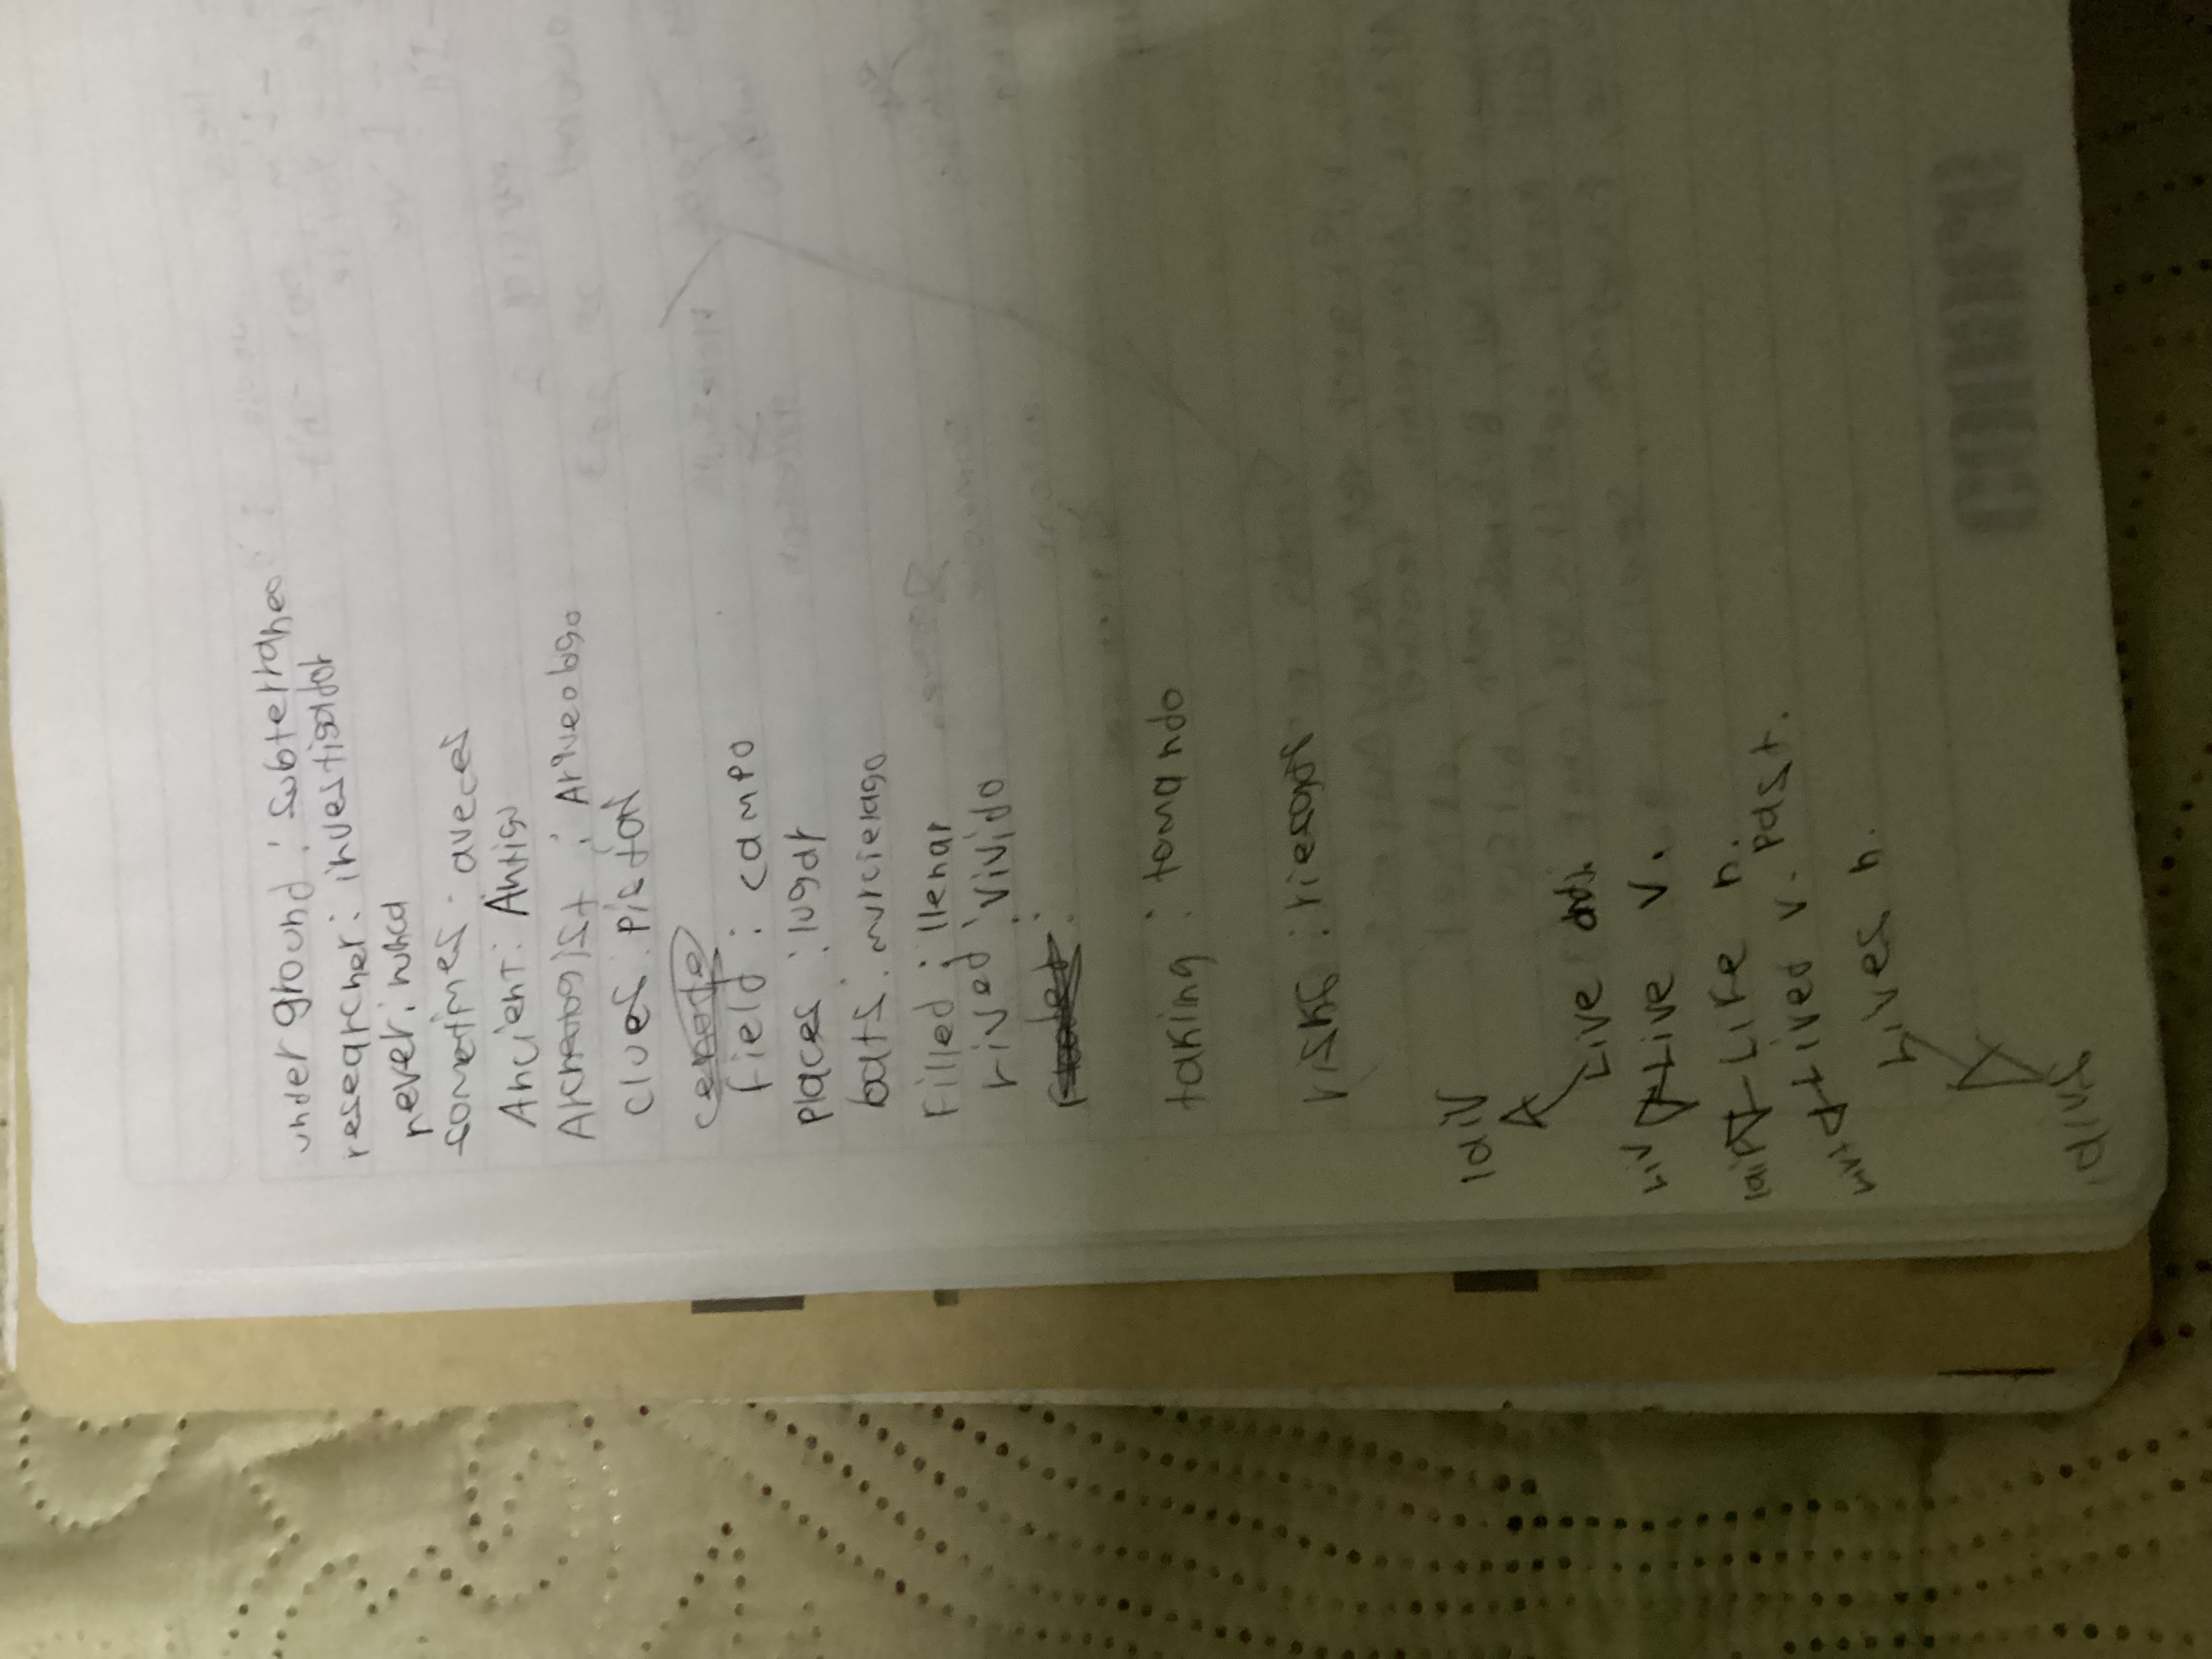 underground : subterraneo
researcher : investigador
never : nunca
sometimes : aveces
Ancient : Antigu
: Arqueologo
clues : pistas
cenote
field : campo
places : lugar
bats : murcielago
Filled : llenar
rived : vivido
taking : tomando
risks : riesgos
laiv
Live adj.
liv Live v.
laif Life n.
Lived v. past.
lives n.
laivs